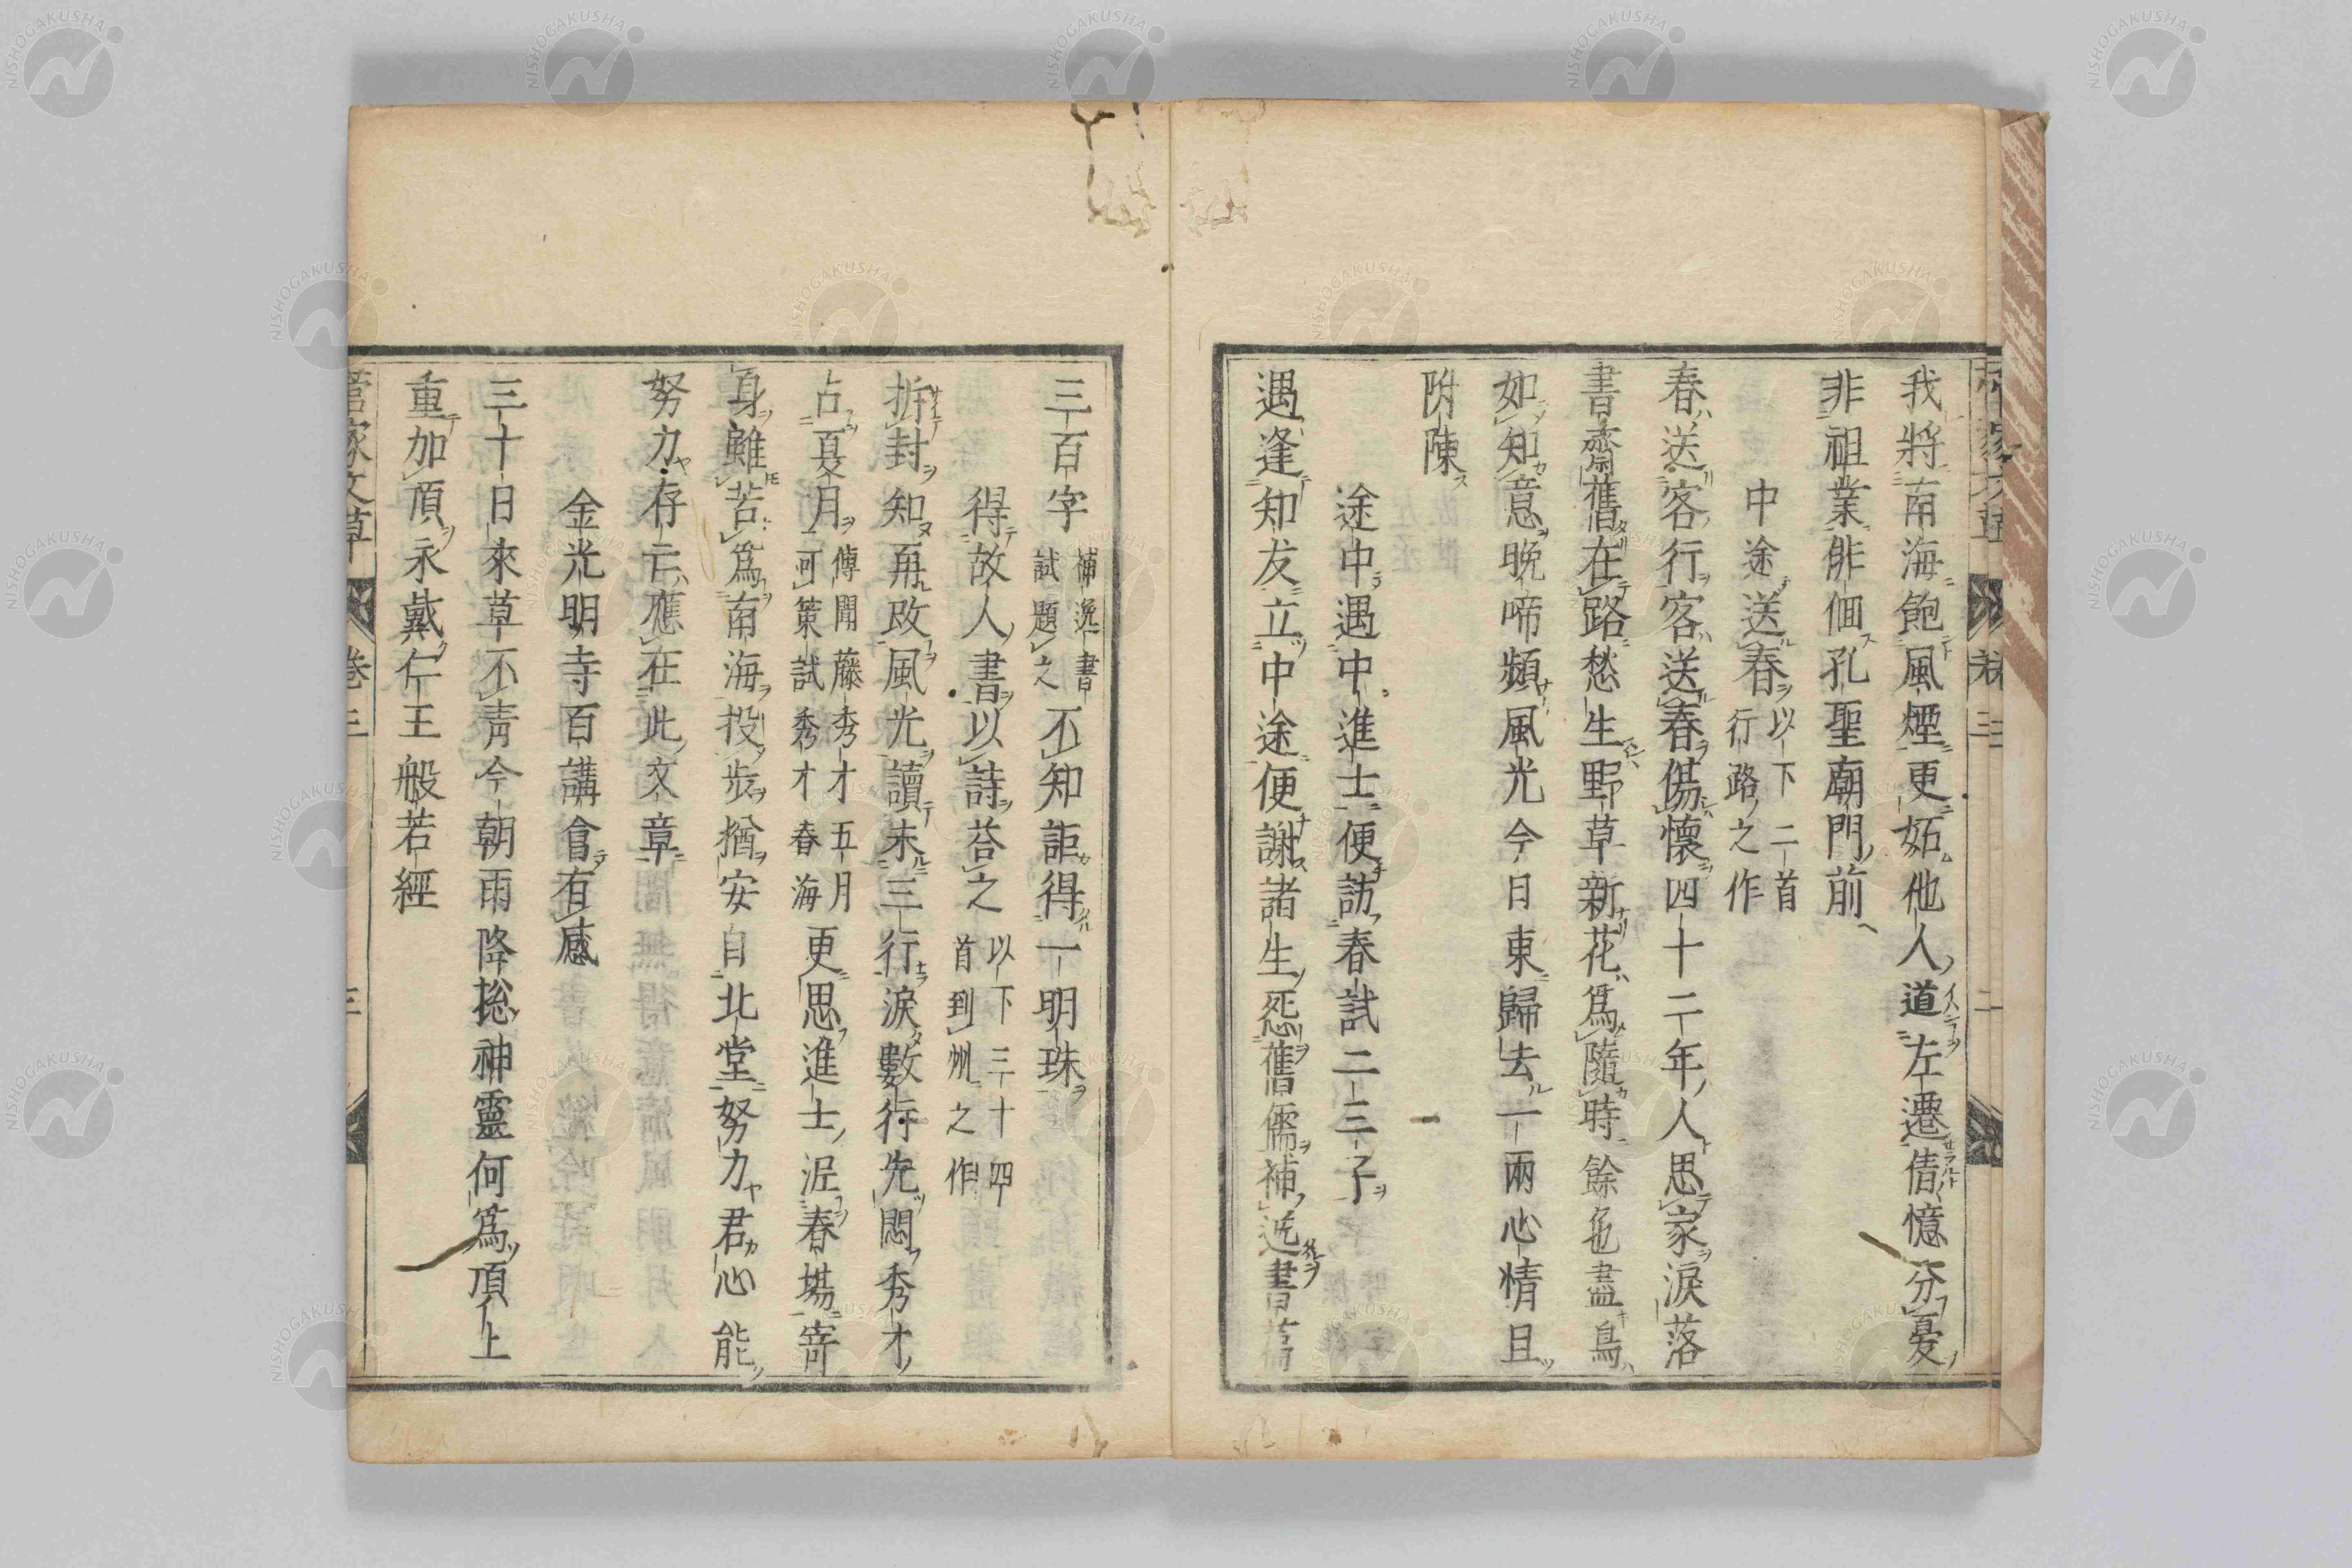 我將南海飽風煙更妬他人道左遷倩憶分憂
非祖業俳佪孔聖廟門前
中途送春以下二首行路之作
春送客行客送春傷懷四十二年人思家淚落
書齋舊在路愁生野草新花爲隨時餘色盡鳥
如知意晚啼頻風光今日東歸去一兩心情且
附陳
途中遇中進士便訪春試二三子
遇逢知友立中途便謝諸生㤪舊儒補逸書
三百字補逸書試題之不知詎得一明珠
得故人書以詩荅之以下三十四首到州之作
拆封知再改風光讀未三行淚數行先悶秀才
占夏月傳聞藤秀才五月可策試秀才春海更思進士泥春場寄
身雖苦爲南海投步猶安自北堂努力君心能
努力存亡應在此文章
金光明寺百講會有感
三十日來草不靑今朝雨降捴神靈何爲頂上
重加頂永戴仁王般若經
菅家文草 卷三 三